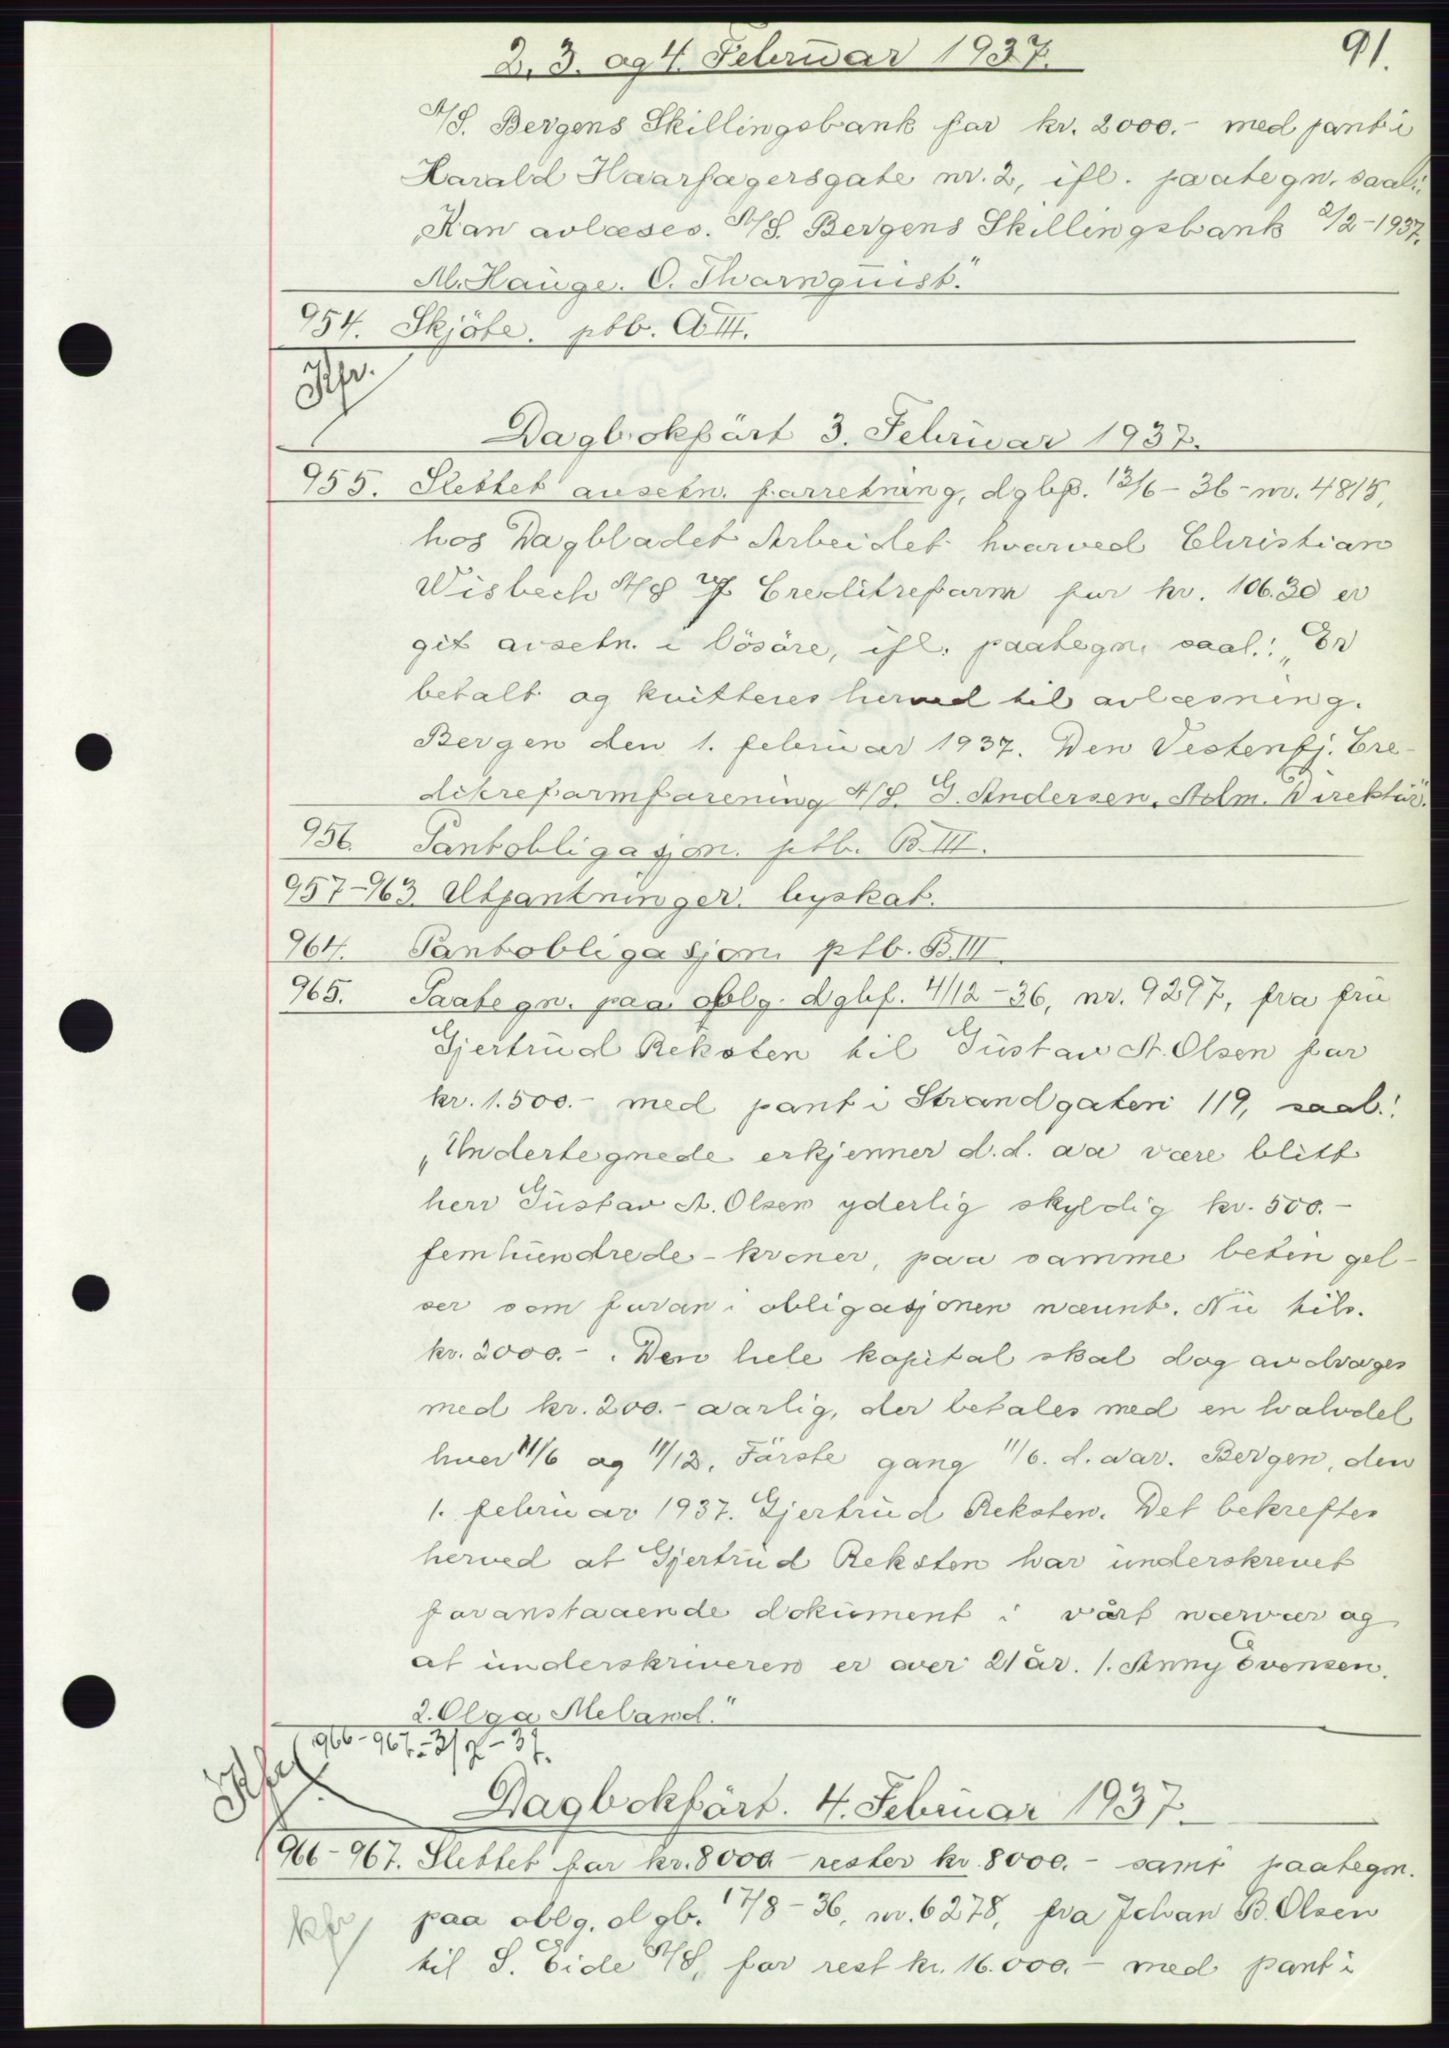 2, 3. og 4. Februar 1937.
91.
A/S. Bergens Skillingsbank for kr. 2000.- med pant i
Harald Haarfagersgate nr. 2, ifl. paategn. saal.:
"Kan avlæses. A/S. Bergens Skillingsbank 2/2-1937.
M. Hauge. O. Thornquist."
954. Skjöte. ptb. A III.
Kfr.
Dagbokfört 3. Februar 1937.
955. Slettet ausetn. forretning, dgbf. 13/6-36-nr. 4815,
hos Dagbladet Arbeidet hvorved Christian
Wisbech A/S Creditreform for kr. 106.30 er
git avsetn. i lösöre, ifl. paategn. saal.: "Er
betalt og kvitteres herved til avlæsning.
Bergen den 1. februar 1937. Den Vestenfj. Cre-
ditreformforening A/S. G. Andersen. Adm. Direktör."
956. Pantobligasjon. ptb. B. III.
957-963. Utpantninger. byskat.
964. Pantobligasjon ptb. B. III
965. Paategn. paa oblg. dgbf. 4/12-36, nr. 9297, fra fru
Gjertrud Reksten til Gustav A. Olsen for
kr. 1.500.- med pant i Strandgaten 119, saal.:
"Undertegnede erkjenner d.d. aa være blitt
herr Gustav A. Olsen yderlig skyldig kr. 500.-
femhundrede-kroner, paa samme betingel-
ser som foran i obligasjonen nævnt. Nu tils.
kr. 2000.-. Den hele kapital skal dog avdrages
med kr. 200.- aarlig, der betales med en halvdel
hver 11/6 og 11/12. Förste gang 11/6. d. aar. Bergen, den
1. februar 1937. Gjertrud Reksten. Det bekreftes
herved at Gjertrud Reksten har underskrevet
foranstaaende dokument i vårt nærvær og
at underskriveren er over 21 år. 1. Anny Evensen.
2. Olga Meland."
966-967.-3/2-37.
Kfr.
Dagbokfört. 4. Februar 1937.
966-967. Slettet for kr. 8000.- rester kr. 8000.- samt paategn.
kfr
paa oblg. dgb. 17/8-36, nr. 6278, fra Johan B. Olsen
til S. Eide A/S, for rest kr. 16.000.- med pant i